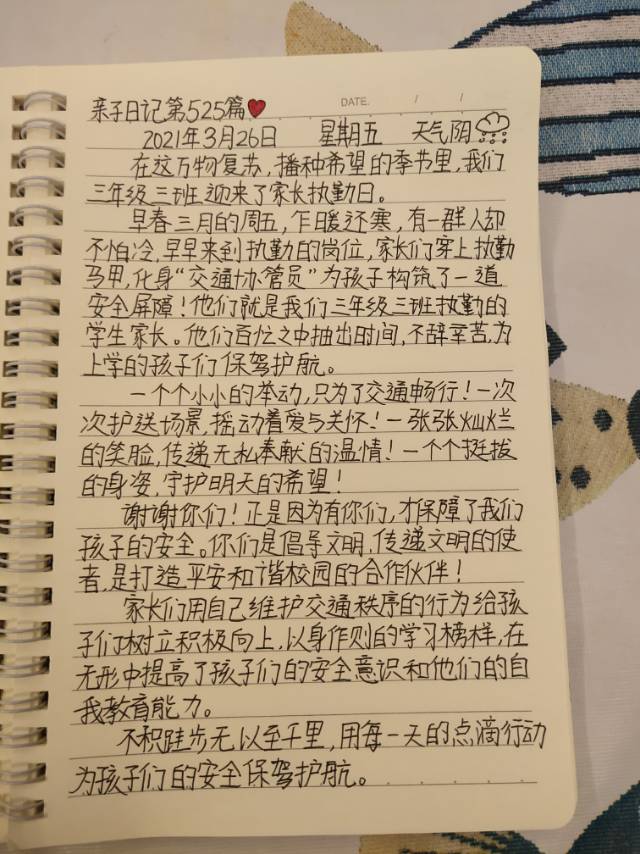 DATE. / /
亲子日记第525篇
2021年3月26日 星期五 天气阴
在这万物复苏,播种希望的季节里,我们
三年级三班迎来了家长执勤日。
早春三月的周五,乍暖还寒,有一群人却
不怕冷,早早来到执勤的岗位,家长们穿上执勤
马甲,化身“交通协管员”为孩子构筑了一道
安全屏障!他们就是我们三年级三班执勤的
学生家长。他们百忙之中抽出时间,不辞辛苦,为
上学的孩子们保驾护航。
一个个小小的举动,只为了交通畅行!一次
次护送场景,摇动着爱与关怀!一张张灿烂
的笑脸,传递无私奉献的温情!一个个挺拔
的身姿,守护明天的希望!
谢谢你们!正是因为有你们,才保障了我们
孩子的安全。你们是倡导文明,传递文明的使
者,是打造平安和谐校园的合作伙伴!
家长们用自己维护交通秩序的行为给孩
子们树立积极向上,以身作则的学习榜样,在
无形中提高了孩子们的安全意识和他们的自
我教育能力。
不积跬步无以至千里,用每一天的点滴行动
为孩子们的安全保驾护航。